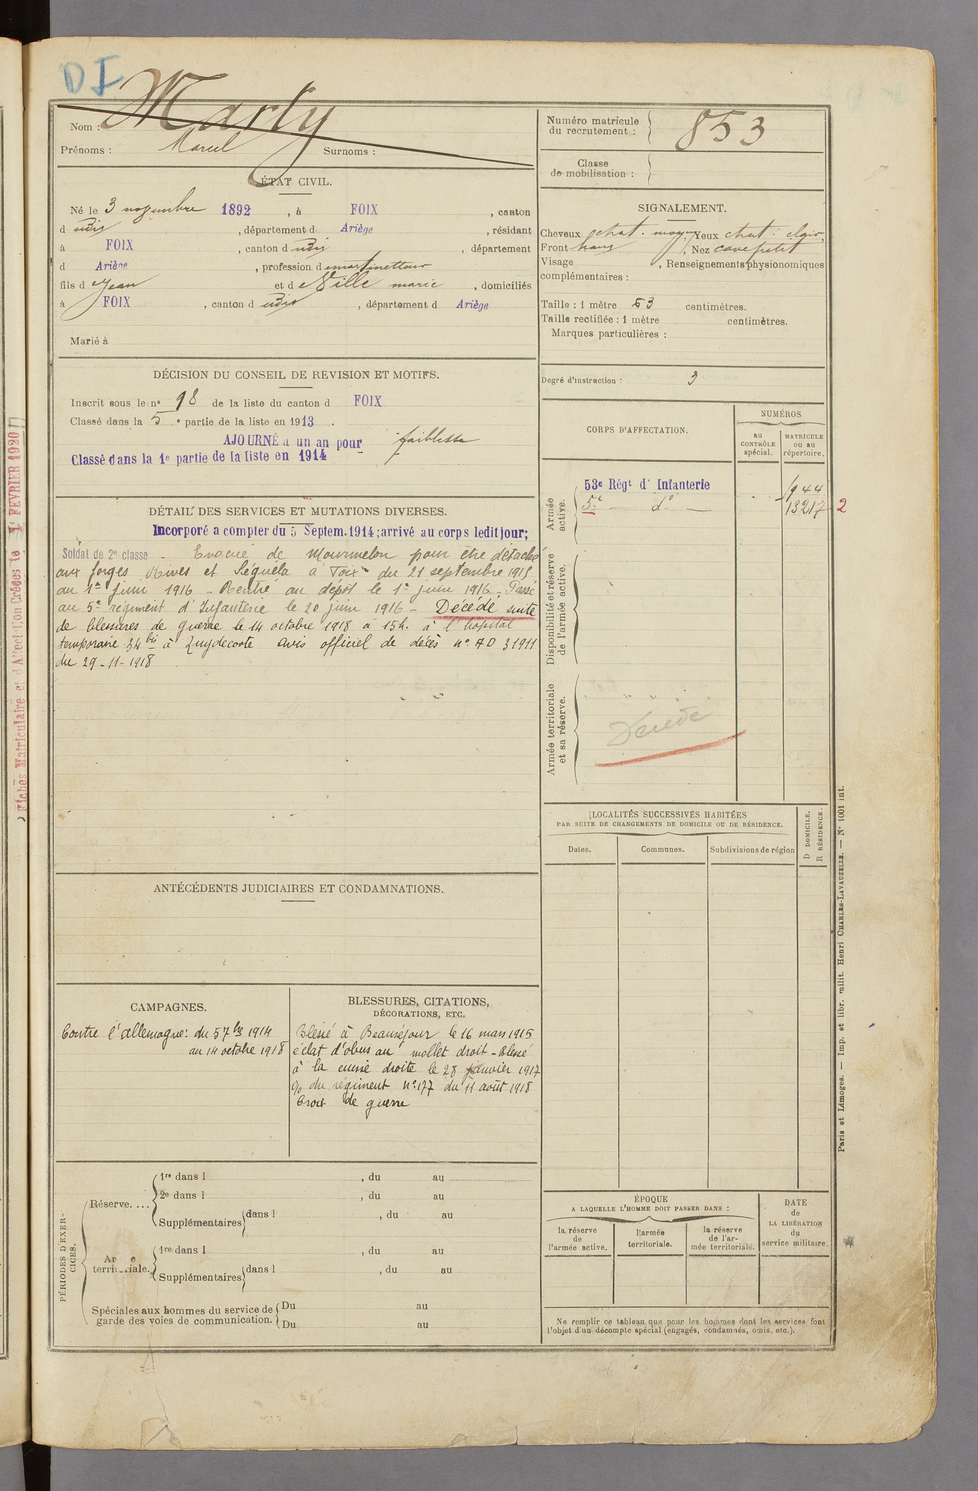 DI
Nom : Marty
Prénoms : Marcel Surnoms :
Numéro matricule du recrutement : 853
Classe de mobilisation :
ÉTAT CIVIL.
Né le 3 novembre 1892, à FOIX, canton
d udis, département d Ariège, résidant
à FOIX, canton d udis, département
d Ariège, profession d martinetteur
fils d e Jean et d e Ville marie, domiciliés
à FOIX, canton d udis, département d Ariège
Marié à
SIGNALEMENT.
Cheveux chat. moyen, Yeux chat. clair,
Front moy, Nez cave petit
Visage , Renseignements physionomiques
complémentaires :
Taille : 1 mètre 53 centimètres.
Taille rectifiée : 1 mètre centimètres.
Marques particulières :
Degré d'instruction : 3
DÉCISION DU CONSEIL DE REVISION ET MOTIFS.
Inscrit sous le n° 98 de la liste du canton d FOIX
Classé dans la 5e partie de la liste en 1913
AJOURNÉ à un an pour faiblesse
Classé dans la 1e partie de la liste en 1914
CORPS D'AFFECTATION.
NUMÉROS
au CONTRÔLE spécial.
MATRICULE ou au répertoire.
Armée active.
53e Régt d'Infanterie 1944
5e — d° — 13217 2
Disponibilité et réserve de l'armée active.
Armée territoriale et sa réserve.
Décédé
DÉTAIL DES SERVICES ET MUTATIONS DIVERSES.
Incorporé a compter du 5 Septem. 1914; arrivé au corps ledit jour;
Soldat de 2e classe - Evacué de Mourmelon pour etre détaché
aux forges Rives et Séquéla à Foix du 21 septembre 1915
au 1er juin 1916 - Rentré au dépôt le 1er juin 1916 - Passé
au 5e régiment d'Infanterie le 20 juin 1916 - Décédé suite
de blessures de guerre le 14 octobre 1918 à 15h. à l'hopital
temporaire 34 bis à Zuydcoote avis officiel de décès n° AD 31911
du 29-11-1918
LOCALITÉS SUCCESSIVES HABITÉES
PAR SUITE DE CHANGEMENTS DE DOMICILE OU DE RÉSIDENCE.
Dates.
Communes.
Subdivisions de région
D DOMICILE.
R RÉSIDENCE.
ANTÉCÉDENTS JUDICIAIRES ET CONDAMNATIONS.
CAMPAGNES.
Contre l'allemagne: du 5 7bre 1914
au 14 octobre 1918
BLESSURES, CITATIONS,
DÉCORATIONS, ETC.
Blessé à Beauséjour le 16 mars 1915
éclat d'obus au mollet droit - Blessé
à la cuisse droite le 28 janvier 1917
% du régiment n° 177 du 11 août 1918
Croix de guerre
PÉRIODES D'EXERCICES.
Réserve. ...
1re dans l , du au
2e dans l , du au
Supplémentaires dans l , du au
territoriale.
1re dans l , du au
Supplémentaires dans l , du au
Spéciales aux hommes du service de garde des voies de communication.
Du au
Du au
ÉPOQUE
A LAQUELLE L'HOMME DOIT PASSER DANS :
la réserve de l'armée active.
l'armée territoriale.
la réserve de l'armée territoriale.
DATE de LA LIBÉRATION du service militaire.
Ne remplir ce tableau que pour les hommes dont les services font
l'objet d'un décompte spécial (engagés, condamnés, omis, etc.).
Paris et Limoges. — Imp. et libr. milit. Henri CHARLES-LAVAUZELLE. — N° 1001 int.
Fiches Matriculaire et d'Affectation Créées le 1 FEVRIER 1920